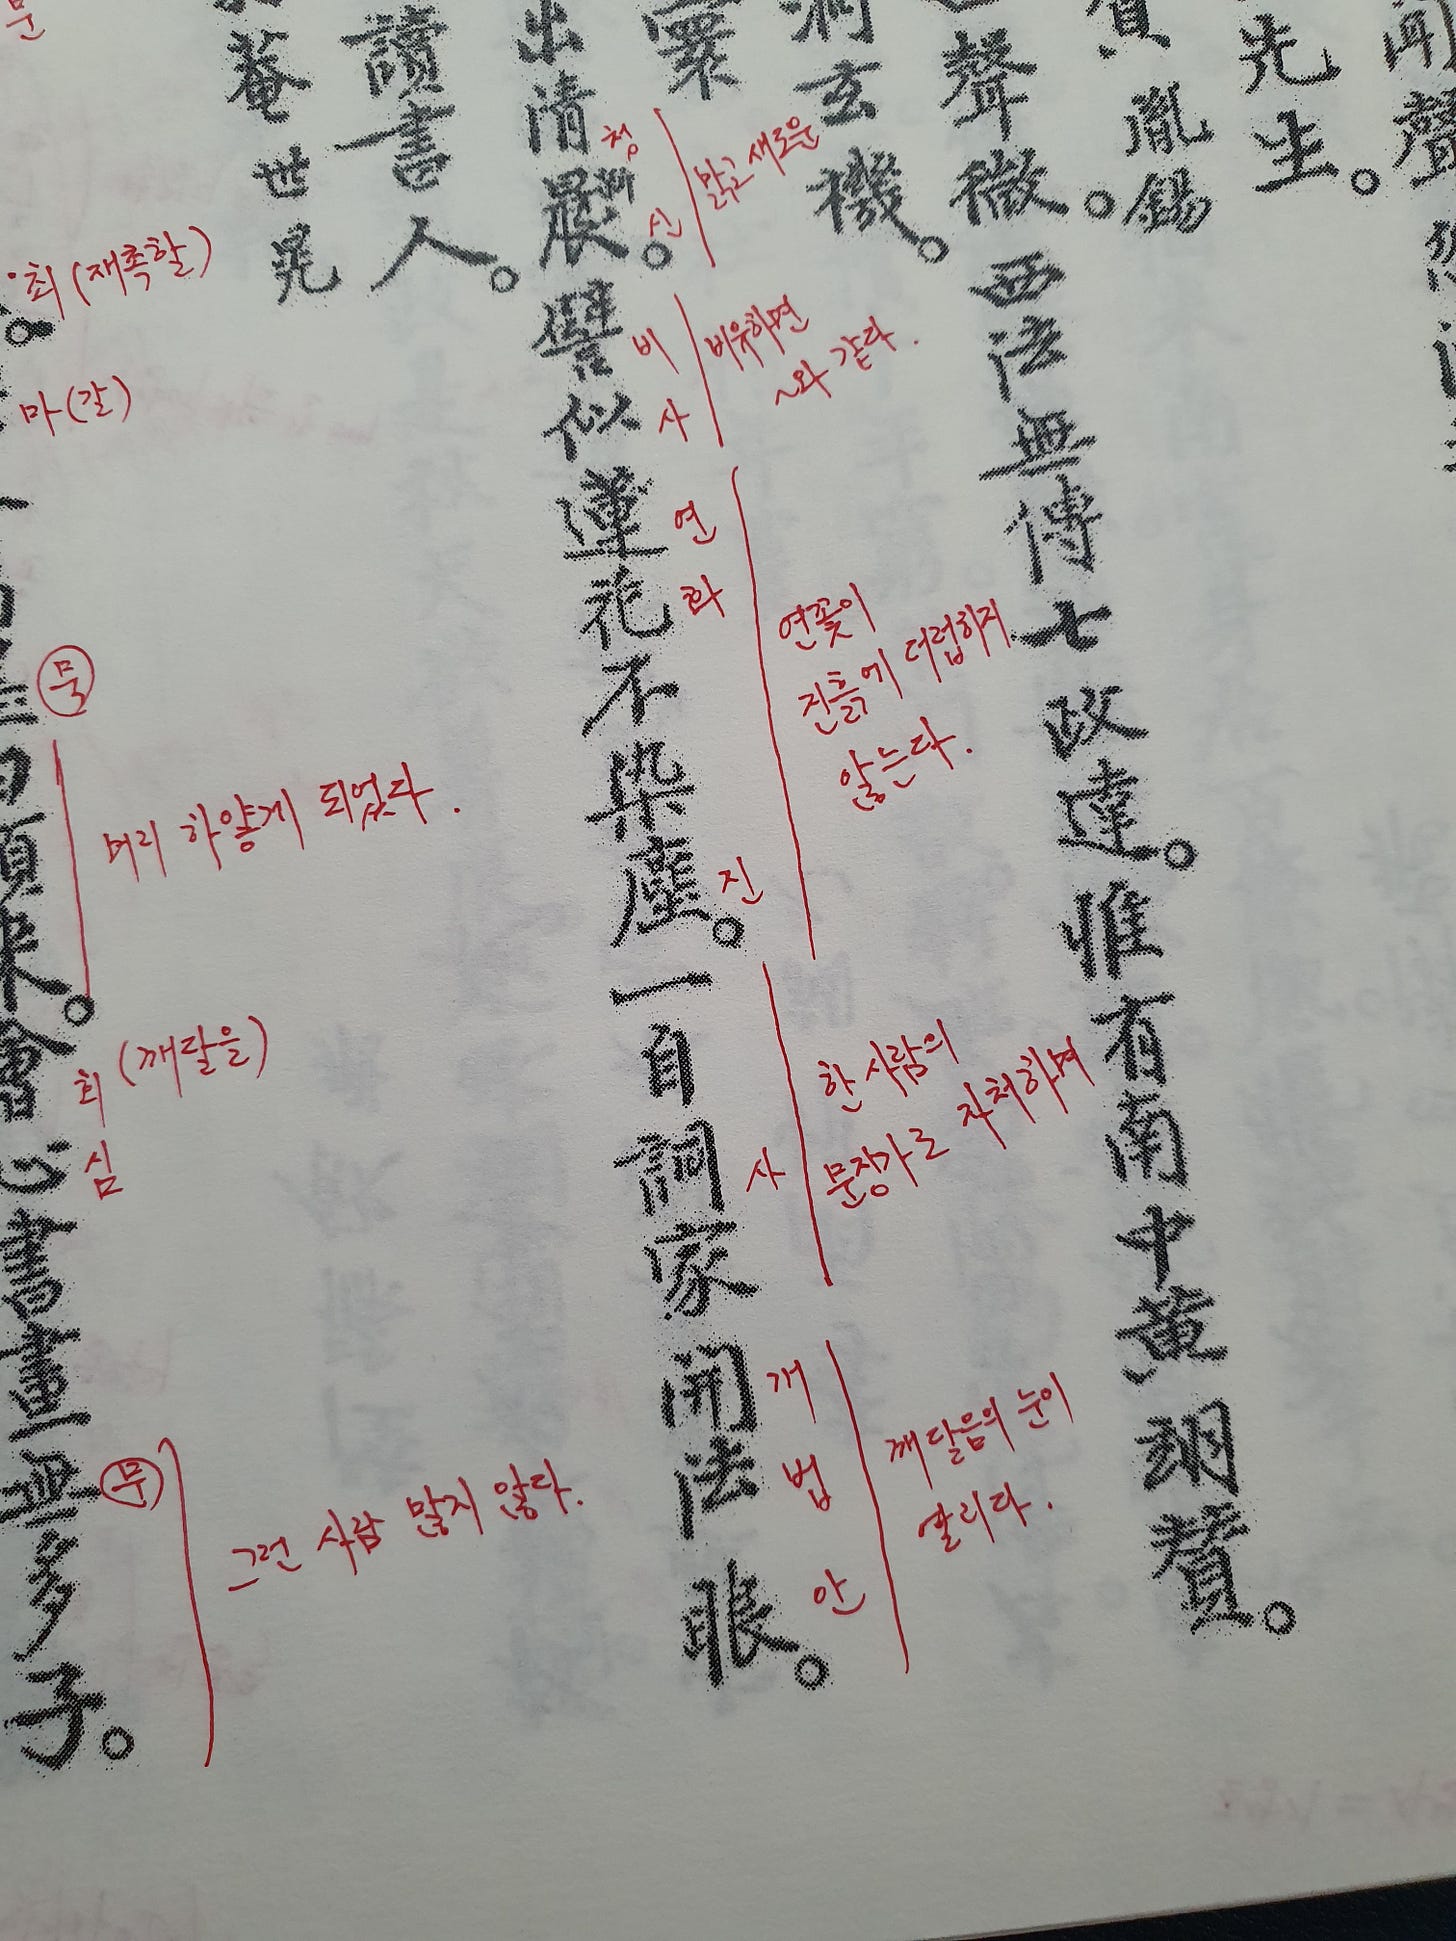 聞聲
先生。
貟 胤錫
聲微。西法無傳七政達。惟有南中黃翊賛。
洞玄機。
출清晨。譬似蓮花不染塵。一自詞家開法眼。
청
신
맑고 새로운
비
사
비유하면
~와 같다.
연
화
진
연꽃이
진흙에 더럽히지
않는다.
사
한 사람의
문장가로 자처하며
개
법
안
깨달음의 눈이
열리다.
讀書人。
菴世晃
최 (재촉할)
마 (갈)
뭇
머리 하얗게 되었다.
회 (깨달을)
심
頭來。會心書畫無多子。
무
그런 사람 많지 않다.